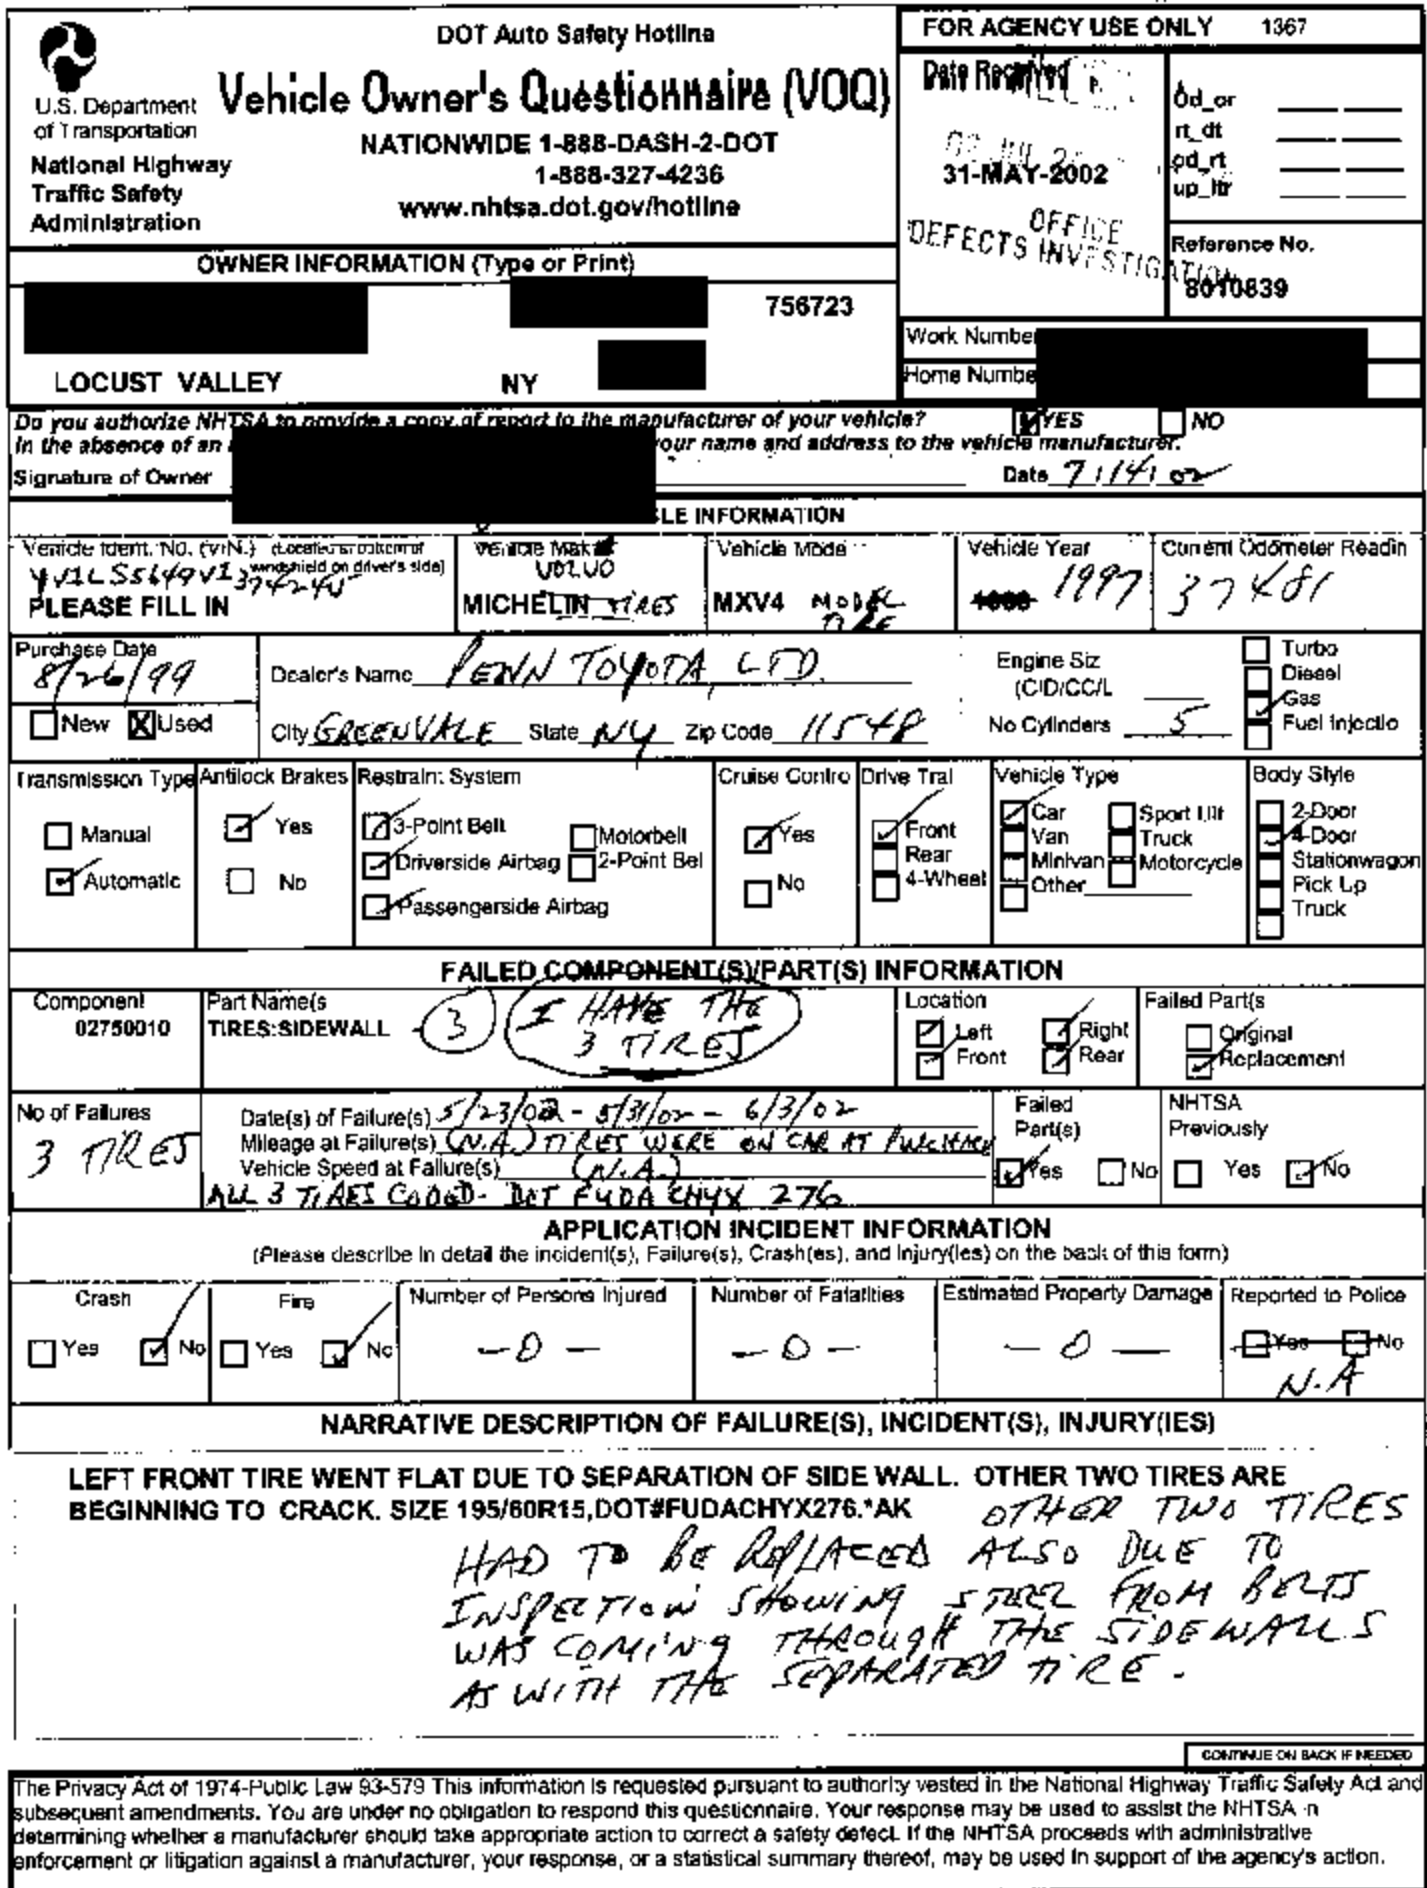 DOT Auto Safety Hotline
Vehicle Owner's Questionnaire (VOQ)
NATIONWIDE 1-888-DASH-2-DOT
1-888-327-4236
www.nhtsa.dot.gov/hotline
U.S. Department
of Transportation
National Highway
Traffic Safety
Administration
FOR AGENCY USE ONLY 1367
Date Received
31-MAY-2002
OFFICE
DEFECTS INVESTIGATION
Od_or
rt_dt
od_rt
up_ltr
Reference No.
8010839
OWNER INFORMATION (Type or Print)
756723
LOCUST VALLEY NY
Work Number
Home Numbe
Do you authorize NHTSA to provide a copy of report to the manufacturer of your vehicle? YES NO
In the absence of an your name and address to the vehicle manufacturer.
Signature of Owner Date 7/14/02
LE INFORMATION
Vehicle Ident. No. (VIN.) (Located at bottom of
windshield on driver's side)
PLEASE FILL IN
Vehicle Make
VOLVO
MICHELIN TIRES
Vehicle Mode
MXV4 MODEL
TIRE
Vehicle Year
1997
Current Odometer Readin
37481
Purchase Date
8/26/99
New Used
Dealer's Name PENN TOYOTA, LTD.
City GREENVALE State NY Zip Code 11548
Engine Siz
(CID/CC/L
No Cylinders 5
Turbo
Diesel
Gas
Fuel Injectio
Transmission Type
Manual
Automatic
Antilock Brakes
Yes
No
Restraint System
3-Point Belt
Driverside Airbag
Passengerside Airbag
Motorbelt
2-Point Bel
Cruise Contro
Yes
No
Drive Trai
Front
Rear
4-Wheel
Vehicle Type
Car
Van
Minivan
Other
Sport Util
Truck
Motorcycle
Body Style
2-Door
4-Door
Stationwagon
Pick Up
Truck
FAILED COMPONENT(S)/PART(S) INFORMATION
Component
02750010
Part Name(s
TIRES:SIDEWALL 3 I HAVE THE
3 TIRES
Location
Left Right
Front Rear
Failed Part(s
Original
Replacement
No of Failures
3 TIRES
Date(s) of Failure(s) 5/23/02 - 5/31/02 - 6/3/02
Mileage at Failure(s) (N.A.) TIRES WERE ON CAR AT PURCHASE
Vehicle Speed at Failure(s) (N.A.)
ALL 3 TIRES CODED - DOT FUDA CHYX 276
Failed
Part(s)
Yes No
NHTSA
Previously
Yes No
APPLICATION INCIDENT INFORMATION
(Please describe in detail the incident(s), Failure(s), Crash(es), and Injury(ies) on the back of this form)
Crash
Yes No
Fire
Yes No
Number of Persons Injured
- 0 -
Number of Fatalities
- 0 -
Estimated Property Damage
- 0 -
Reported to Police
Yes No
N.A
NARRATIVE DESCRIPTION OF FAILURE(S), INCIDENT(S), INJURY(IES)
LEFT FRONT TIRE WENT FLAT DUE TO SEPARATION OF SIDE WALL. OTHER TWO TIRES ARE
BEGINNING TO CRACK. SIZE 195/60R15,DOT#FUDACHYX276.*AK OTHER TWO TIRES
HAD TO BE REPLACED ALSO DUE TO
INSPECTION SHOWING STEEL FROM BELTS
WAS COMING THROUGH THE SIDEWALLS
AS WITH THE SEPARATED TIRE.
CONTINUE ON BACK IF NEEDED
The Privacy Act of 1974-Public Law 93-579 This information is requested pursuant to authority vested in the National Highway Traffic Safety Act and
subsequent amendments. You are under no obligation to respond this questionnaire. Your response may be used to assist the NHTSA in
determining whether a manufacturer should take appropriate action to correct a safety defect. If the NHTSA proceeds with administrative
enforcement or litigation against a manufacturer, your response, or a statistical summary thereof, may be used in support of the agency's action.